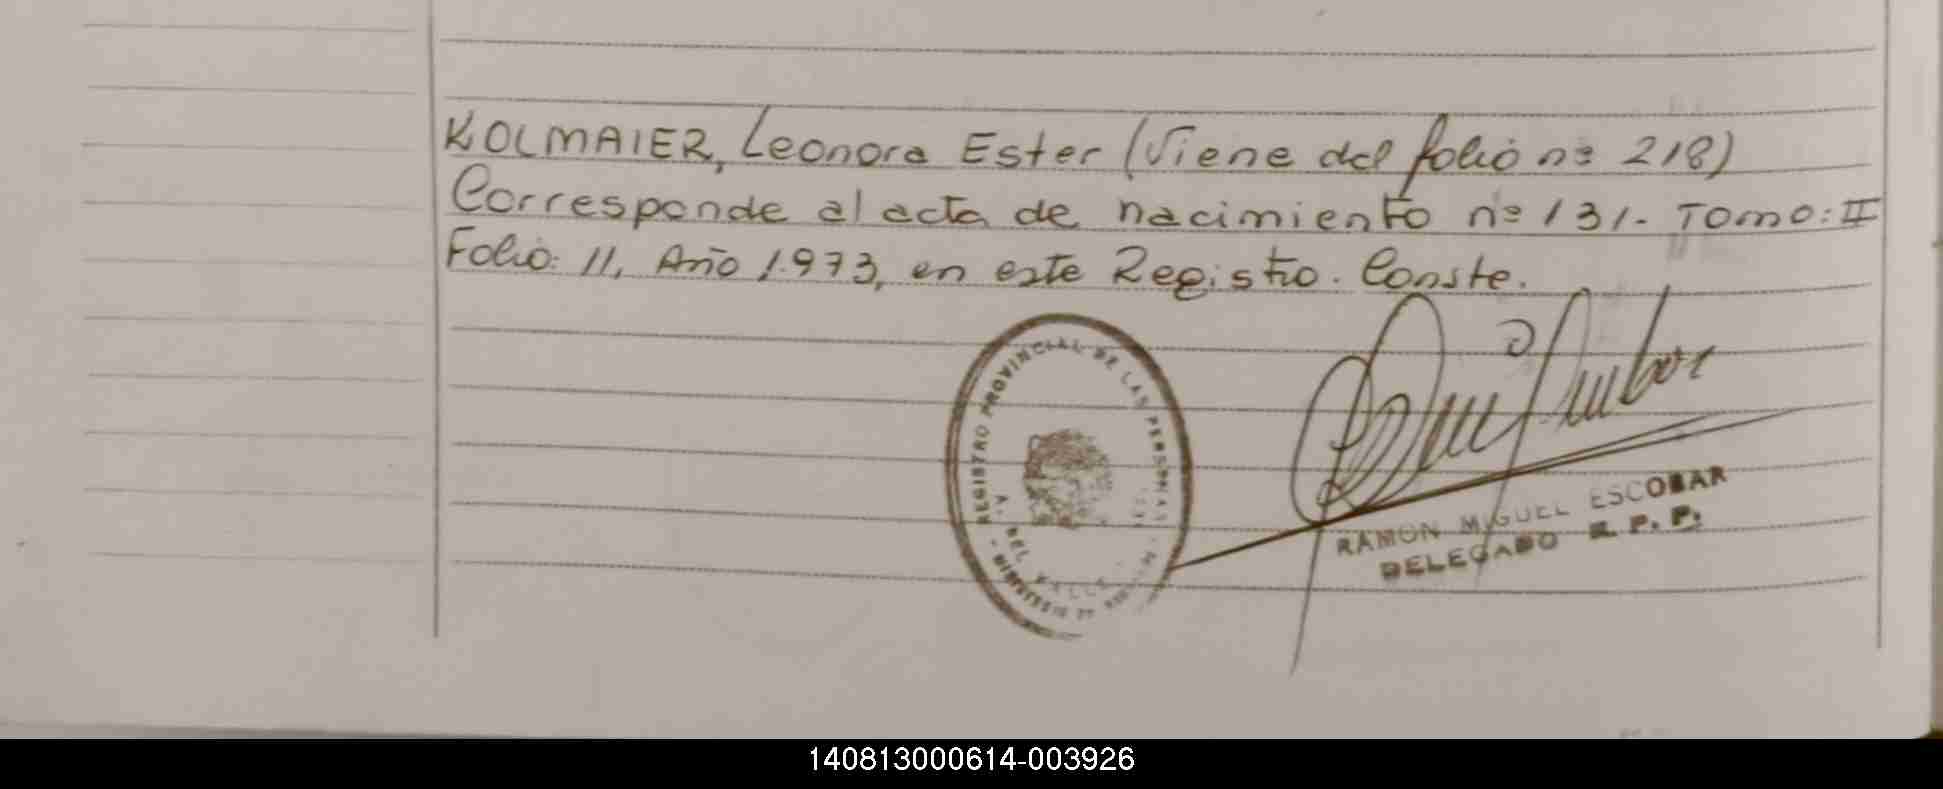 KOLMAIER, Leonora Ester (Viene del folio nº 218)
Corresponde al acta de nacimiento nº 131- Tomo: II
Folio: 11, Año 1.973, en este Registro. Conste.
REGISTRO PROVINCIAL DE LAS PERSONAS
A. DEL VALLE
RAMON MIGUEL ESCOBAR
DELEGADO R. P. P.
140813000614-003926